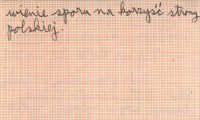 wienie sporu na korzyść strony
polskiej.